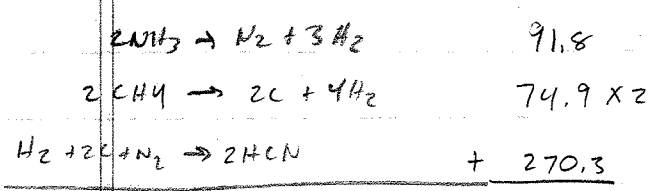 2NH3 → N2 + 3H2 91.8
2CH4 → 2C + 4H2 74.9 x 2
H2 + 2C + N2 → 2HCN + 270.3